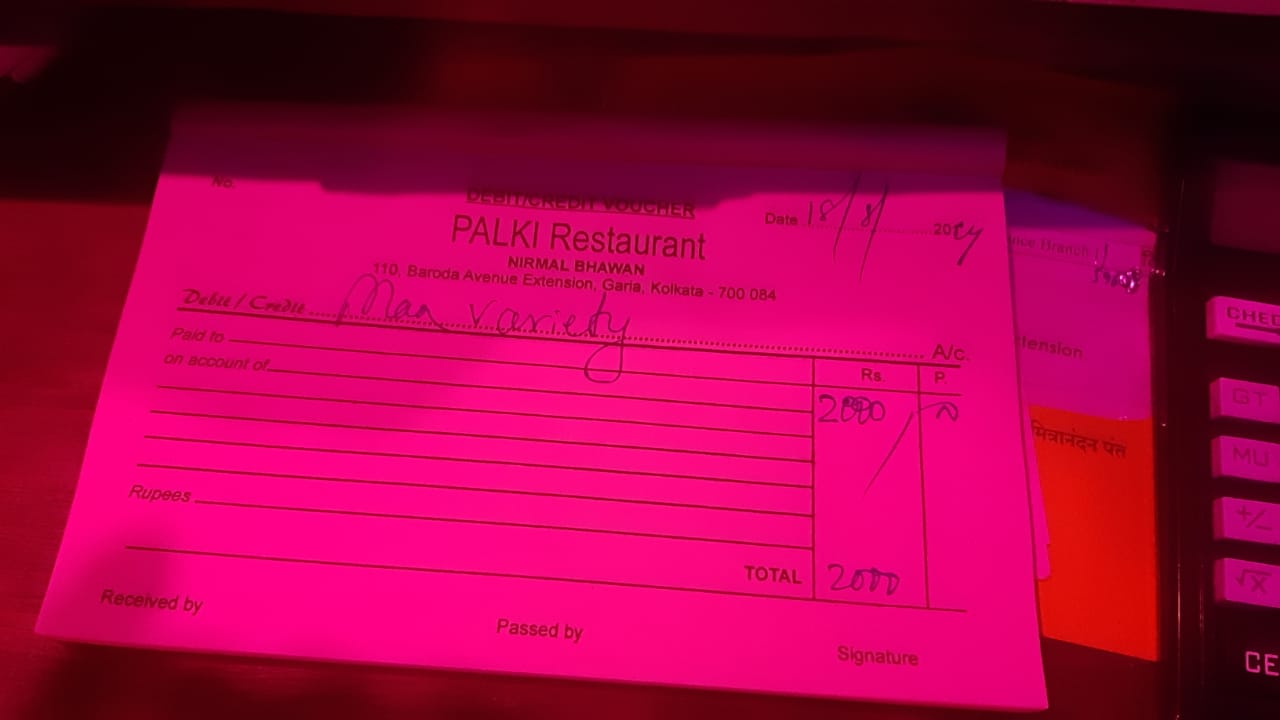 No.
DEBIT/CREDIT VOUCHER
Date 18/8/ 2024
PALKI Restaurant
NIRMAL BHAWAN
110, Baroda Avenue Extension, Garia, Kolkata - 700 084
Debit / Credit Maa Variety A/c.
Paid to
Rs. P.
on account of
2000
Rupees
TOTAL 2000
Received by
Passed by
Signature
Branch
tension
मित्रानंदन पंत
CHEC
GT
MU
+/-
√X
CE